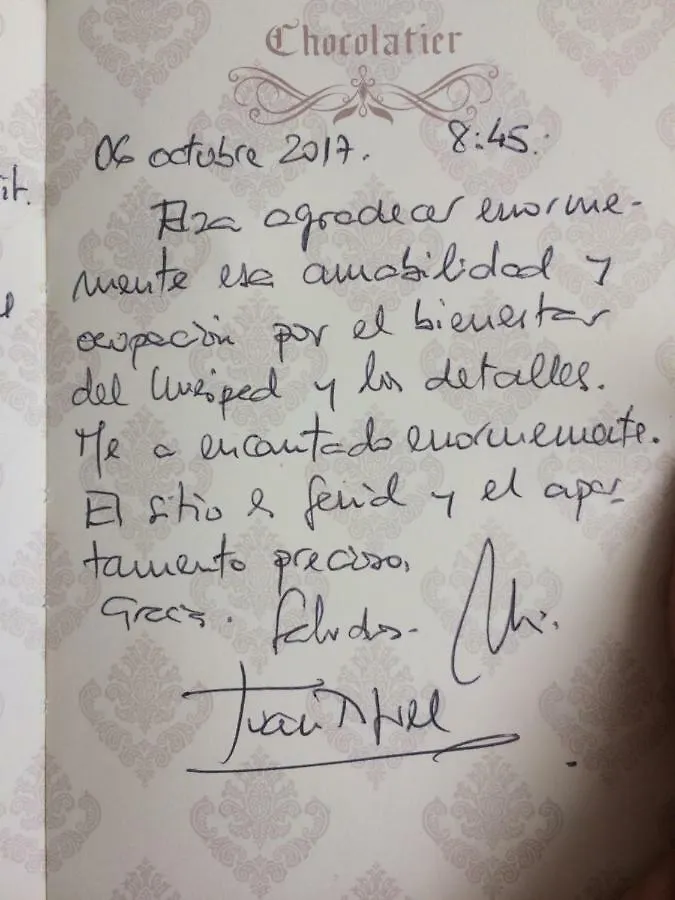 Chocolatier
06 octubre 2017. 8:45.
agradecer enorme-
mente esa amabilidad y
ocupación por el bienestar
del huesped y los detalles.
Me a encantado enormemente.
El sitio es genial y el apar-
tamento precioso.
Gracias. Saludos.
Juan
it.